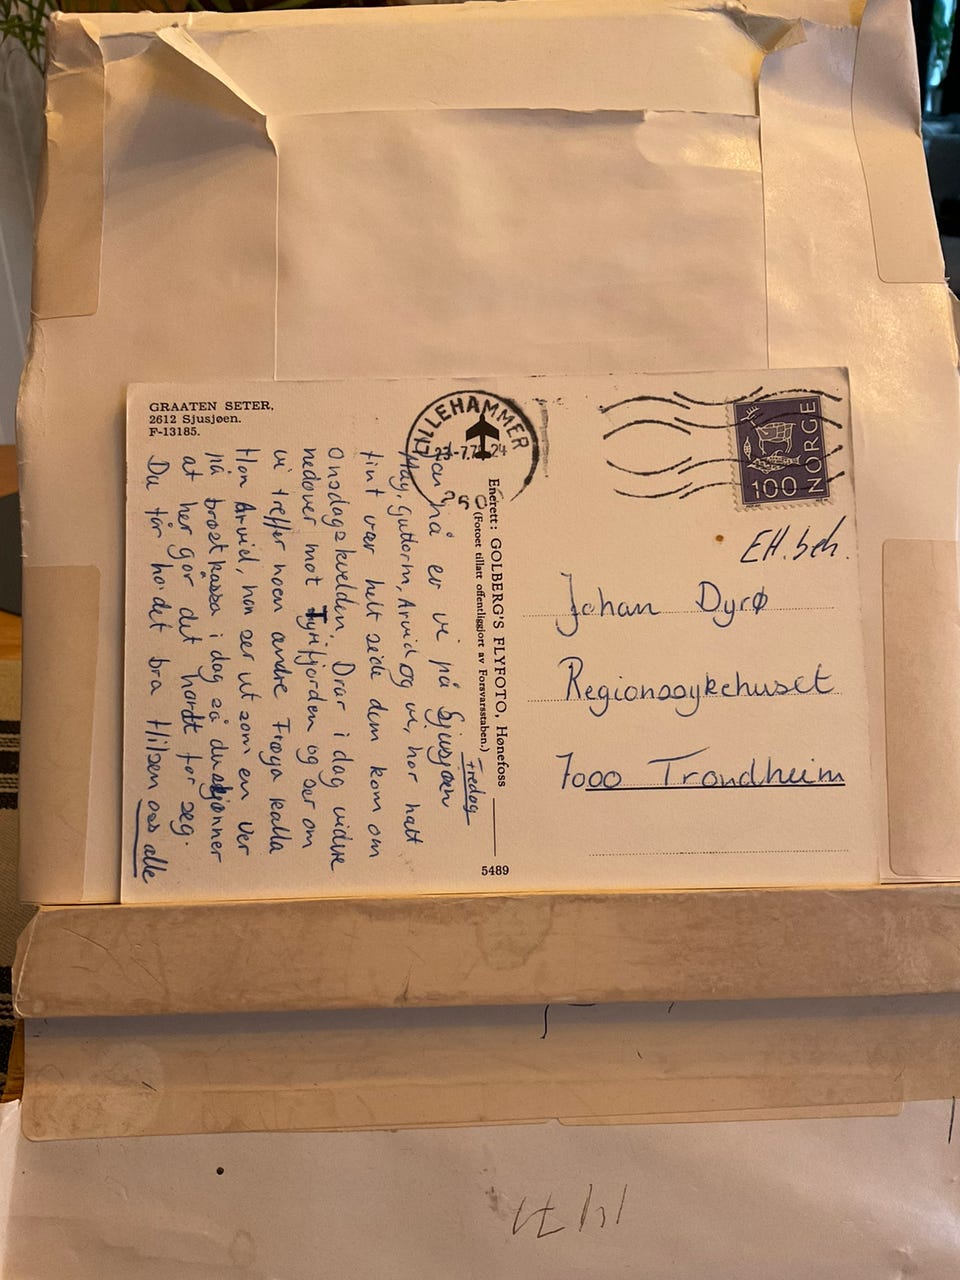 GRAATEN SETER,
2612 Sjusjøen.
F-13185.
Fredag
nå er vi på Sjusjøen
May, Guttorm, Arvid og vi, har hatt
fint vær helt siden dem kom om
Onsdagskvelden. Drar i dag videre
nedover mot Tyrifjorden og ser om
vi treffer noen andre Frøya kalla
Han Arvid, han ser ut som en ver
på brøstkassa i dag så du skjønner
at her går det hardt for seg.
Du får ha det bra Hilsen oss alle
Enerett: GOLBERG'S FLYFOTO, Hønefoss
(Fotoet tillatt offentliggjort av Forsvarsstaben.)
5489
LILLEHAMMER
NORGE
100
EH.beh.
Johan Dyrø
Regionssykehuset
7000 Trondheim